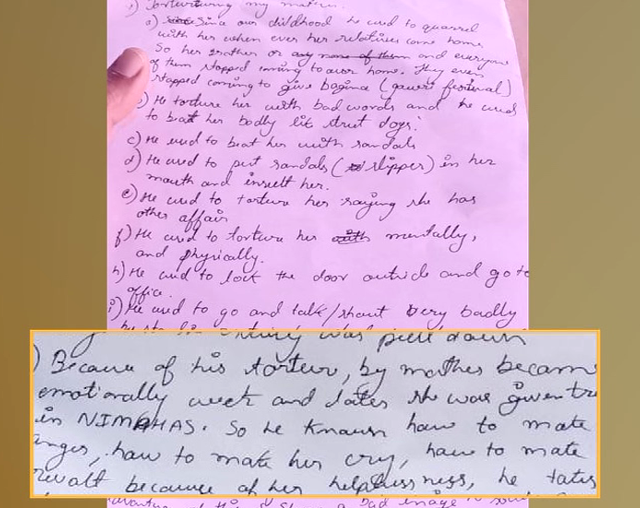 1) Torturing my mother.
a) Since our childhood he used to quarrel
with her when ever her relatives come home.
So her brother or any none of them and everyone
of them stopped coming to our home. They even
stopped coming to give bagina (gauri festival)
b) He torture her with bad words and he used
to beat her badly lik stret dogs.
c) He used to beat her with sandals
d) He used to put sandals (slipper) in her
mouth and insult her.
e) He used to torture her saying she has
other affair
f) He used to torture her with mentally,
and physically.
h) He used to lock the door outside and go to
office.
i) He used to go and talk/shout very badly
was pull down
) Because of his torture, by mother becam
emotionally week and later she was given tre
in NIMHAS. So he known how to make
anger, how to make her cry, how to make
revolt because of her helplessness, he takes
a bad image